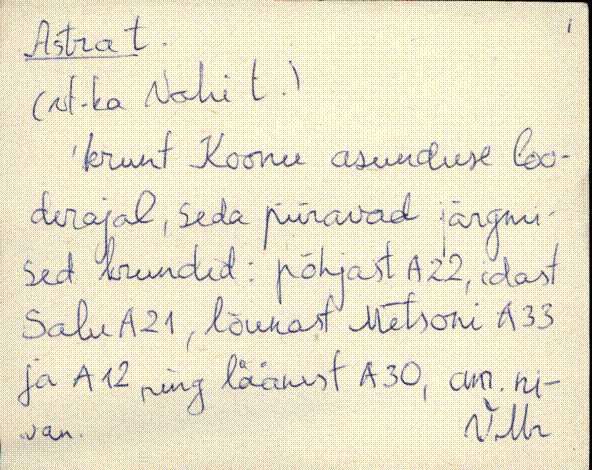 i
Astra t.
(vt. ka Nahi t.)
'krunt Koonu asunduse loo-
derajal, seda piiravad järgmi-
sed krundid: põhjast A22, idast
Salu A21, lõunast Metsoni A33
ja A12 ning läänest A30, am. ni-
van.
VMr